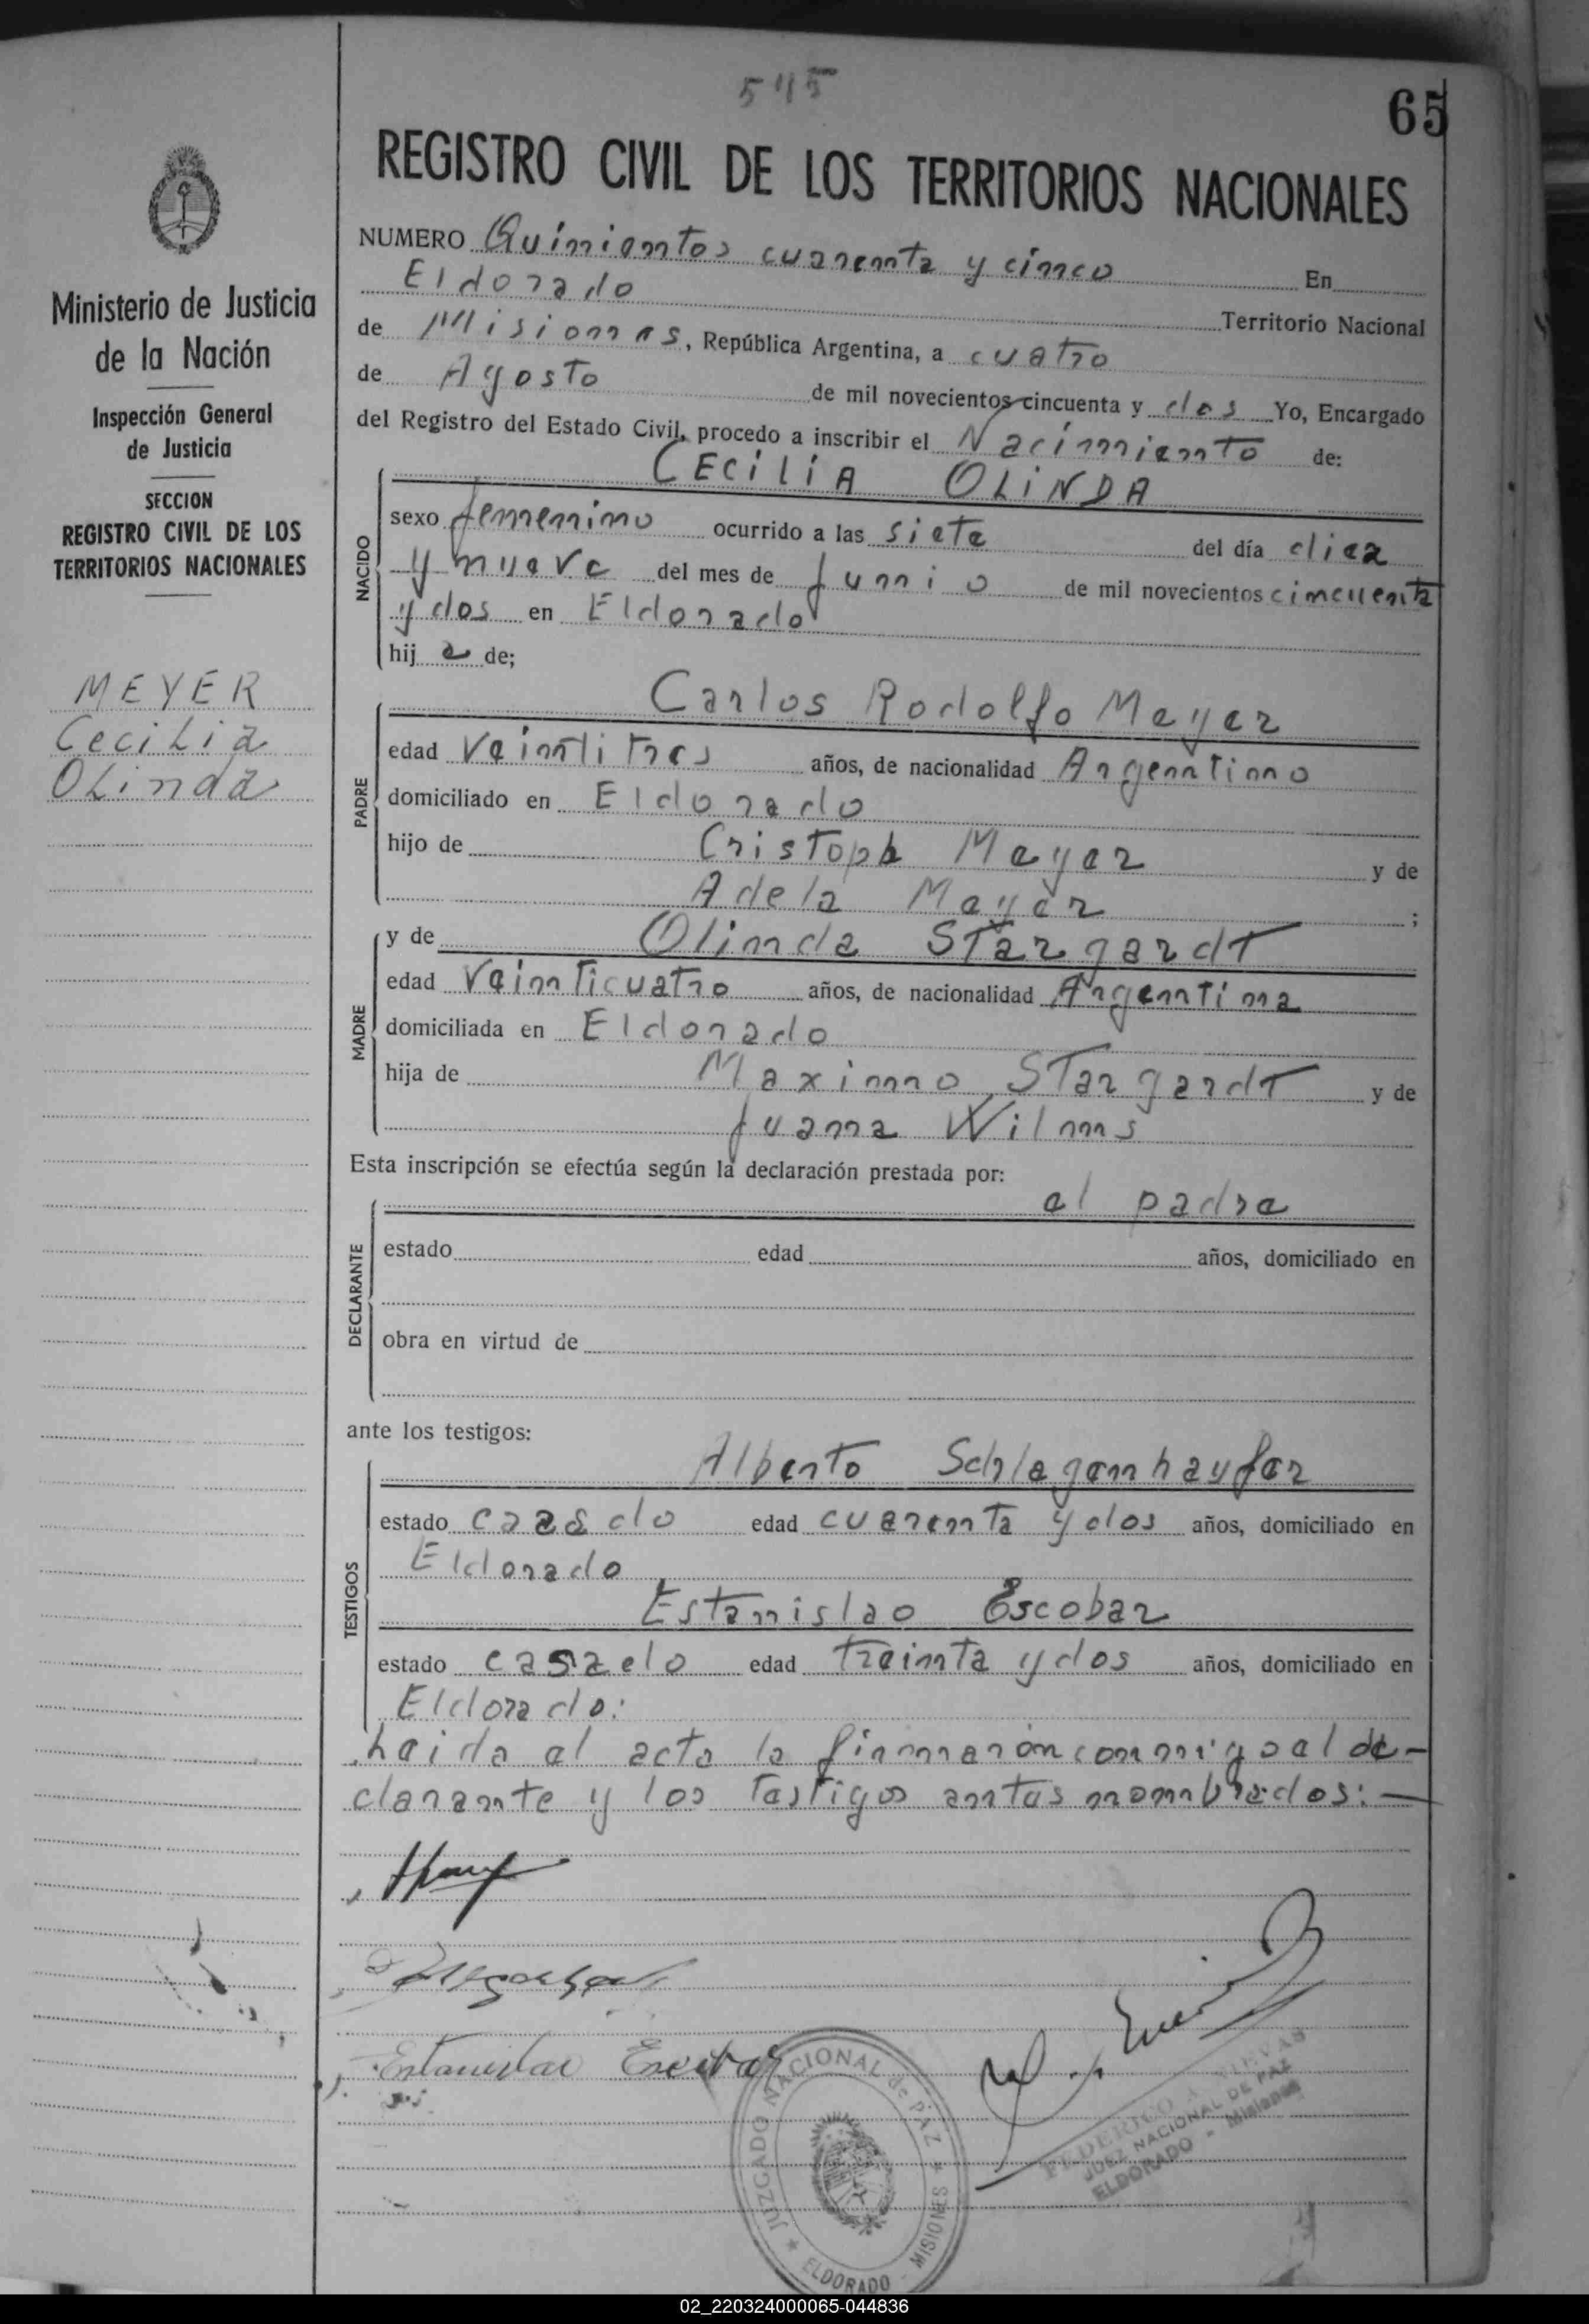 545
65
REGISTRO CIVIL DE LOS TERRITORIOS NACIONALES
Ministerio de Justicia
de la Nación
Inspección General
de Justicia
SECCION
REGISTRO CIVIL DE LOS
TERRITORIOS NACIONALES
MEYER
Cecilia
Olinda
NUMERO Quinientos cuarenta y cinco En
Eldorado Territorio Nacional
de Misiones, República Argentina, a cuatro
de Agosto de mil novecientos cincuenta y dos Yo, Encargado
del Registro del Estado Civil, procedo a inscribir el Nacimiento de:
NACIDO
CECILIA OLINDA
sexo femenino ocurrido a las siete del día diez
y nueve del mes de Junio de mil novecientos cincuenta
y dos en Eldorado
hij a de;
PADRE
Carlos Rodolfo Meyer
edad veintitres años, de nacionalidad Argentino
domiciliado en Eldorado
hijo de Cristoph Meyer y de
Adela Meyer ;
MADRE
y de Olinda Stargardt
edad Veinticuatro años, de nacionalidad Argentina
domiciliada en Eldorado
hija de Maximo Stargardt y de
Juana Wilms
Esta inscripción se efectúa según la declaración prestada por:
DECLARANTE
el padre
estado edad años, domiciliado en
obra en virtud de
ante los testigos:
TESTIGOS
Alberto Schlagenhaufer
estado casado edad cuarenta y dos años, domiciliado en
Eldorado
Estanislao Escobar
estado casado edad treinta y dos años, domiciliado en
Eldorado:
Leida el acta la firmaron conmigo el de-
clarante y los testigos antes nombrados:—
Estanislao Escobar
JUZGADO NACIONAL de PAZ
ELDORADO - MISIONES
FEDERICO A. CUEVAS
JUEZ NACIONAL DE PAZ
ELDORADO - Misiones
02_220324000065-044836